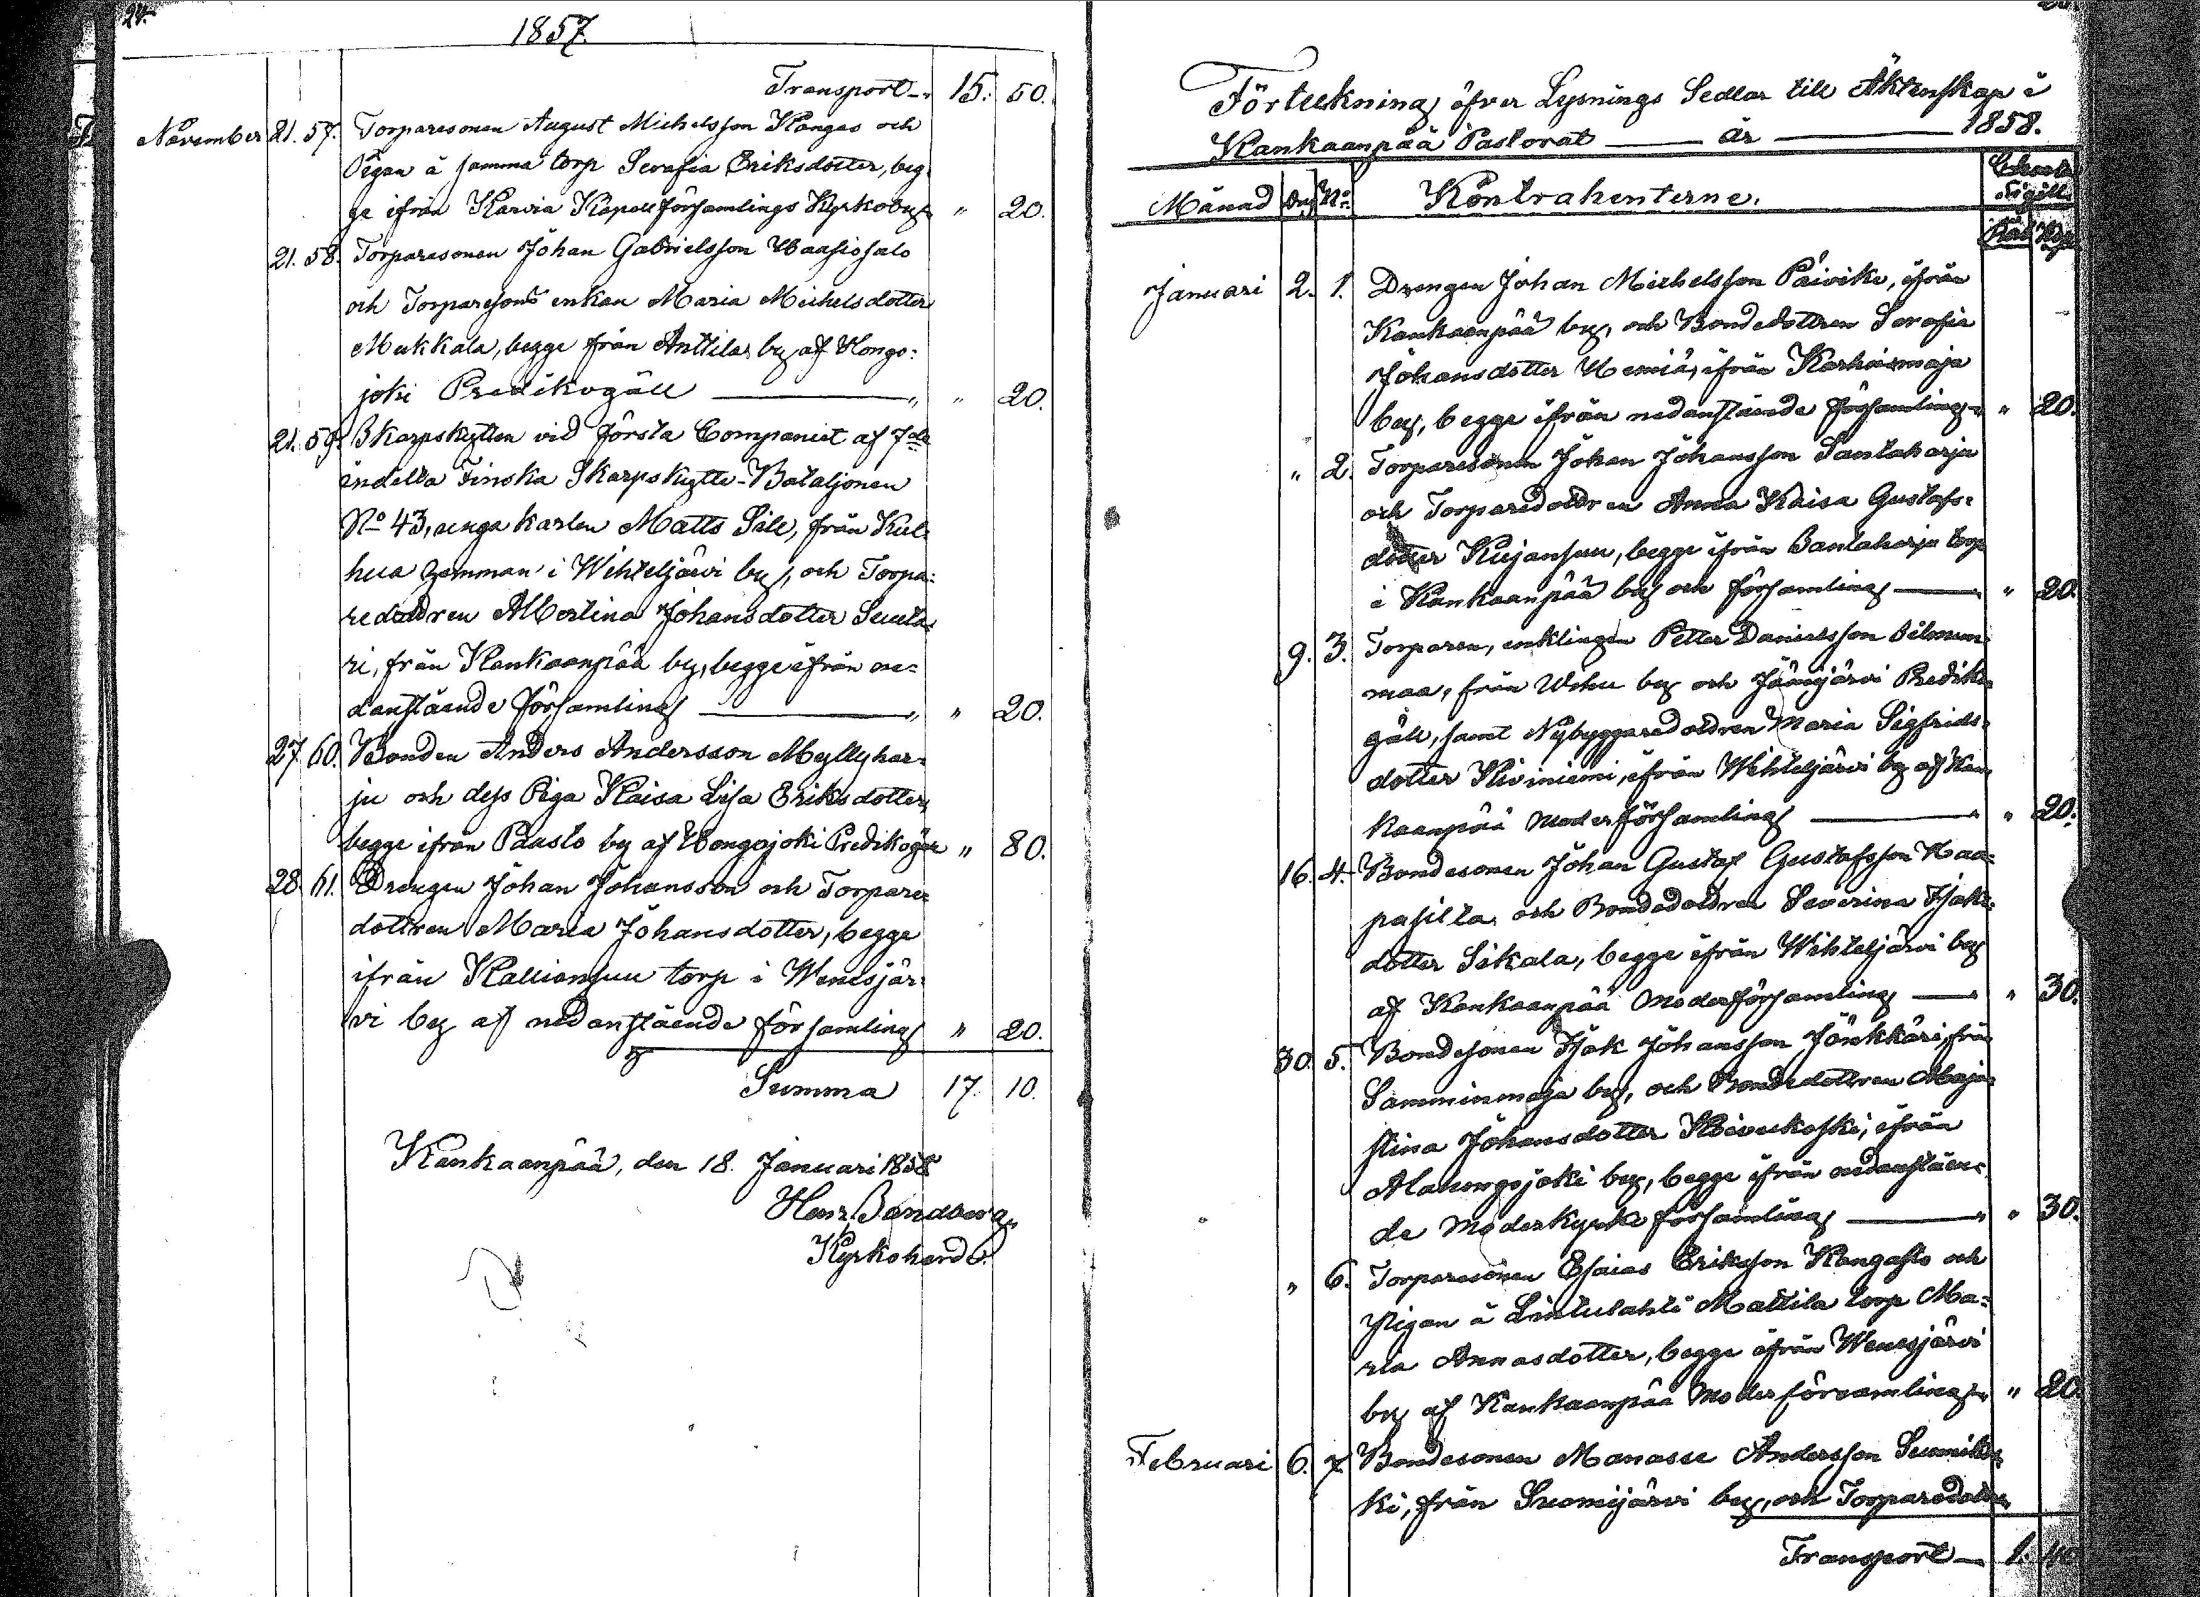 24.
1857.
Transport 15. 50.
November 21. 57. Torparesonen August Michelsson Kangas och
Pigan å samma torp Serafia Eriksdotter, beg-
ge ifrån Karvia Kapellförsamlings Kyrkoby " 20.
21. 58. Torparesonen Johan Gabrielsson Waasiosalo
och Torparesons enkan Maria Michelsdotter
Mukkala, begge från Anttila by af Hongo-
joki Predikogäll " 20.
21. 59. Skarpskytten vid första Companiet af 7de
indelta Finska Skarpskytte-Bataljonen
No 43, unga karlen Matts Sill, från Kul-
hua hemman i Wihteljärvi by, och Torpa-
redottren Albertina Johansdotter Suuta-
ri, från Kankaanpää by, begge ifrån ne-
danstående församling " 20.
27 60. Bonden Anders Andersson Myllyhar-
ju och dess Piga Kaisa Lisa Eriksdotter,
begge ifrån Paasto by af Hongojoki Predikogäll " 80.
28. 61. Drengen Johan Johansson och Torpare-
dottren Maria Johansdotter, begge
ifrån Kallionsuu torp i Wenesjär-
vi by af nedanstående församling " 20.
Summa 17. 10.
Kankaanpää, den 18. Januari 1858
Kyrkoherde.
Förteckning öfver Lysnings Sedlar till Äktenskap i
Kankaanpää Pastorat år 1858.
Månad Dag No Kontrahenterne. Charta Sigill.
Rub. Kop.
Januari 2. 1. Drengen Johan Michelsson Päivike, ifrån
Kankaanpää by, och Bondedottren Serafia
Johansdotter Uemiä, ifrån Karhoismaja
by, begge ifrån nedanstående församling " 20.
" 2. Torparesonen Johan Johansson Santaharju
och Torparedottren Anna Kaisa Gustafs-
dotter Kujansuu, begge ifrån Santaharju torp
i Kankaanpää by och församling " 20.
9. 3. Torparen, enklingen Petter Danielsson Silmun-
maa, från Wihu by och Jämijärvi Prediko-
gäll, samt Nybyggaredottren Maria Sigfrids-
dotter Kiviniemi, ifrån Wihteljärvi by af Kan-
kaanpää Moderförsamling " 20.
16. 4. Bondesonen Johan Gustaf Gustafsson Haa-
pasilta och Bondedottren Severina Isaks-
dotter Sikala, begge ifrån Wihteljärvi by
af Kankaanpää Moderförsamling " 30.
30. 5. Bondesonen Isak Johansson Jönkkäri, från
Samminmaja by, och Bondedottren Maja
Stina Johansdotter Koivukoski, ifrån
Alahongojoki by, begge ifrån nedanståen-
de Moderkyrko församling " 30.
" 6. Torparesonen Esaias Eriksson Kangasto och
Pigan å Lintulahti Mattila torp Ma-
ria Annasdotter, begge ifrån Wenesjärvi
by af Kankaanpää Moder församling " 20
Februari 6. 7. Bondesonen Manasse Andersson
ki, från Suomijärvi by, och Torparedottren
Transport 1. 40